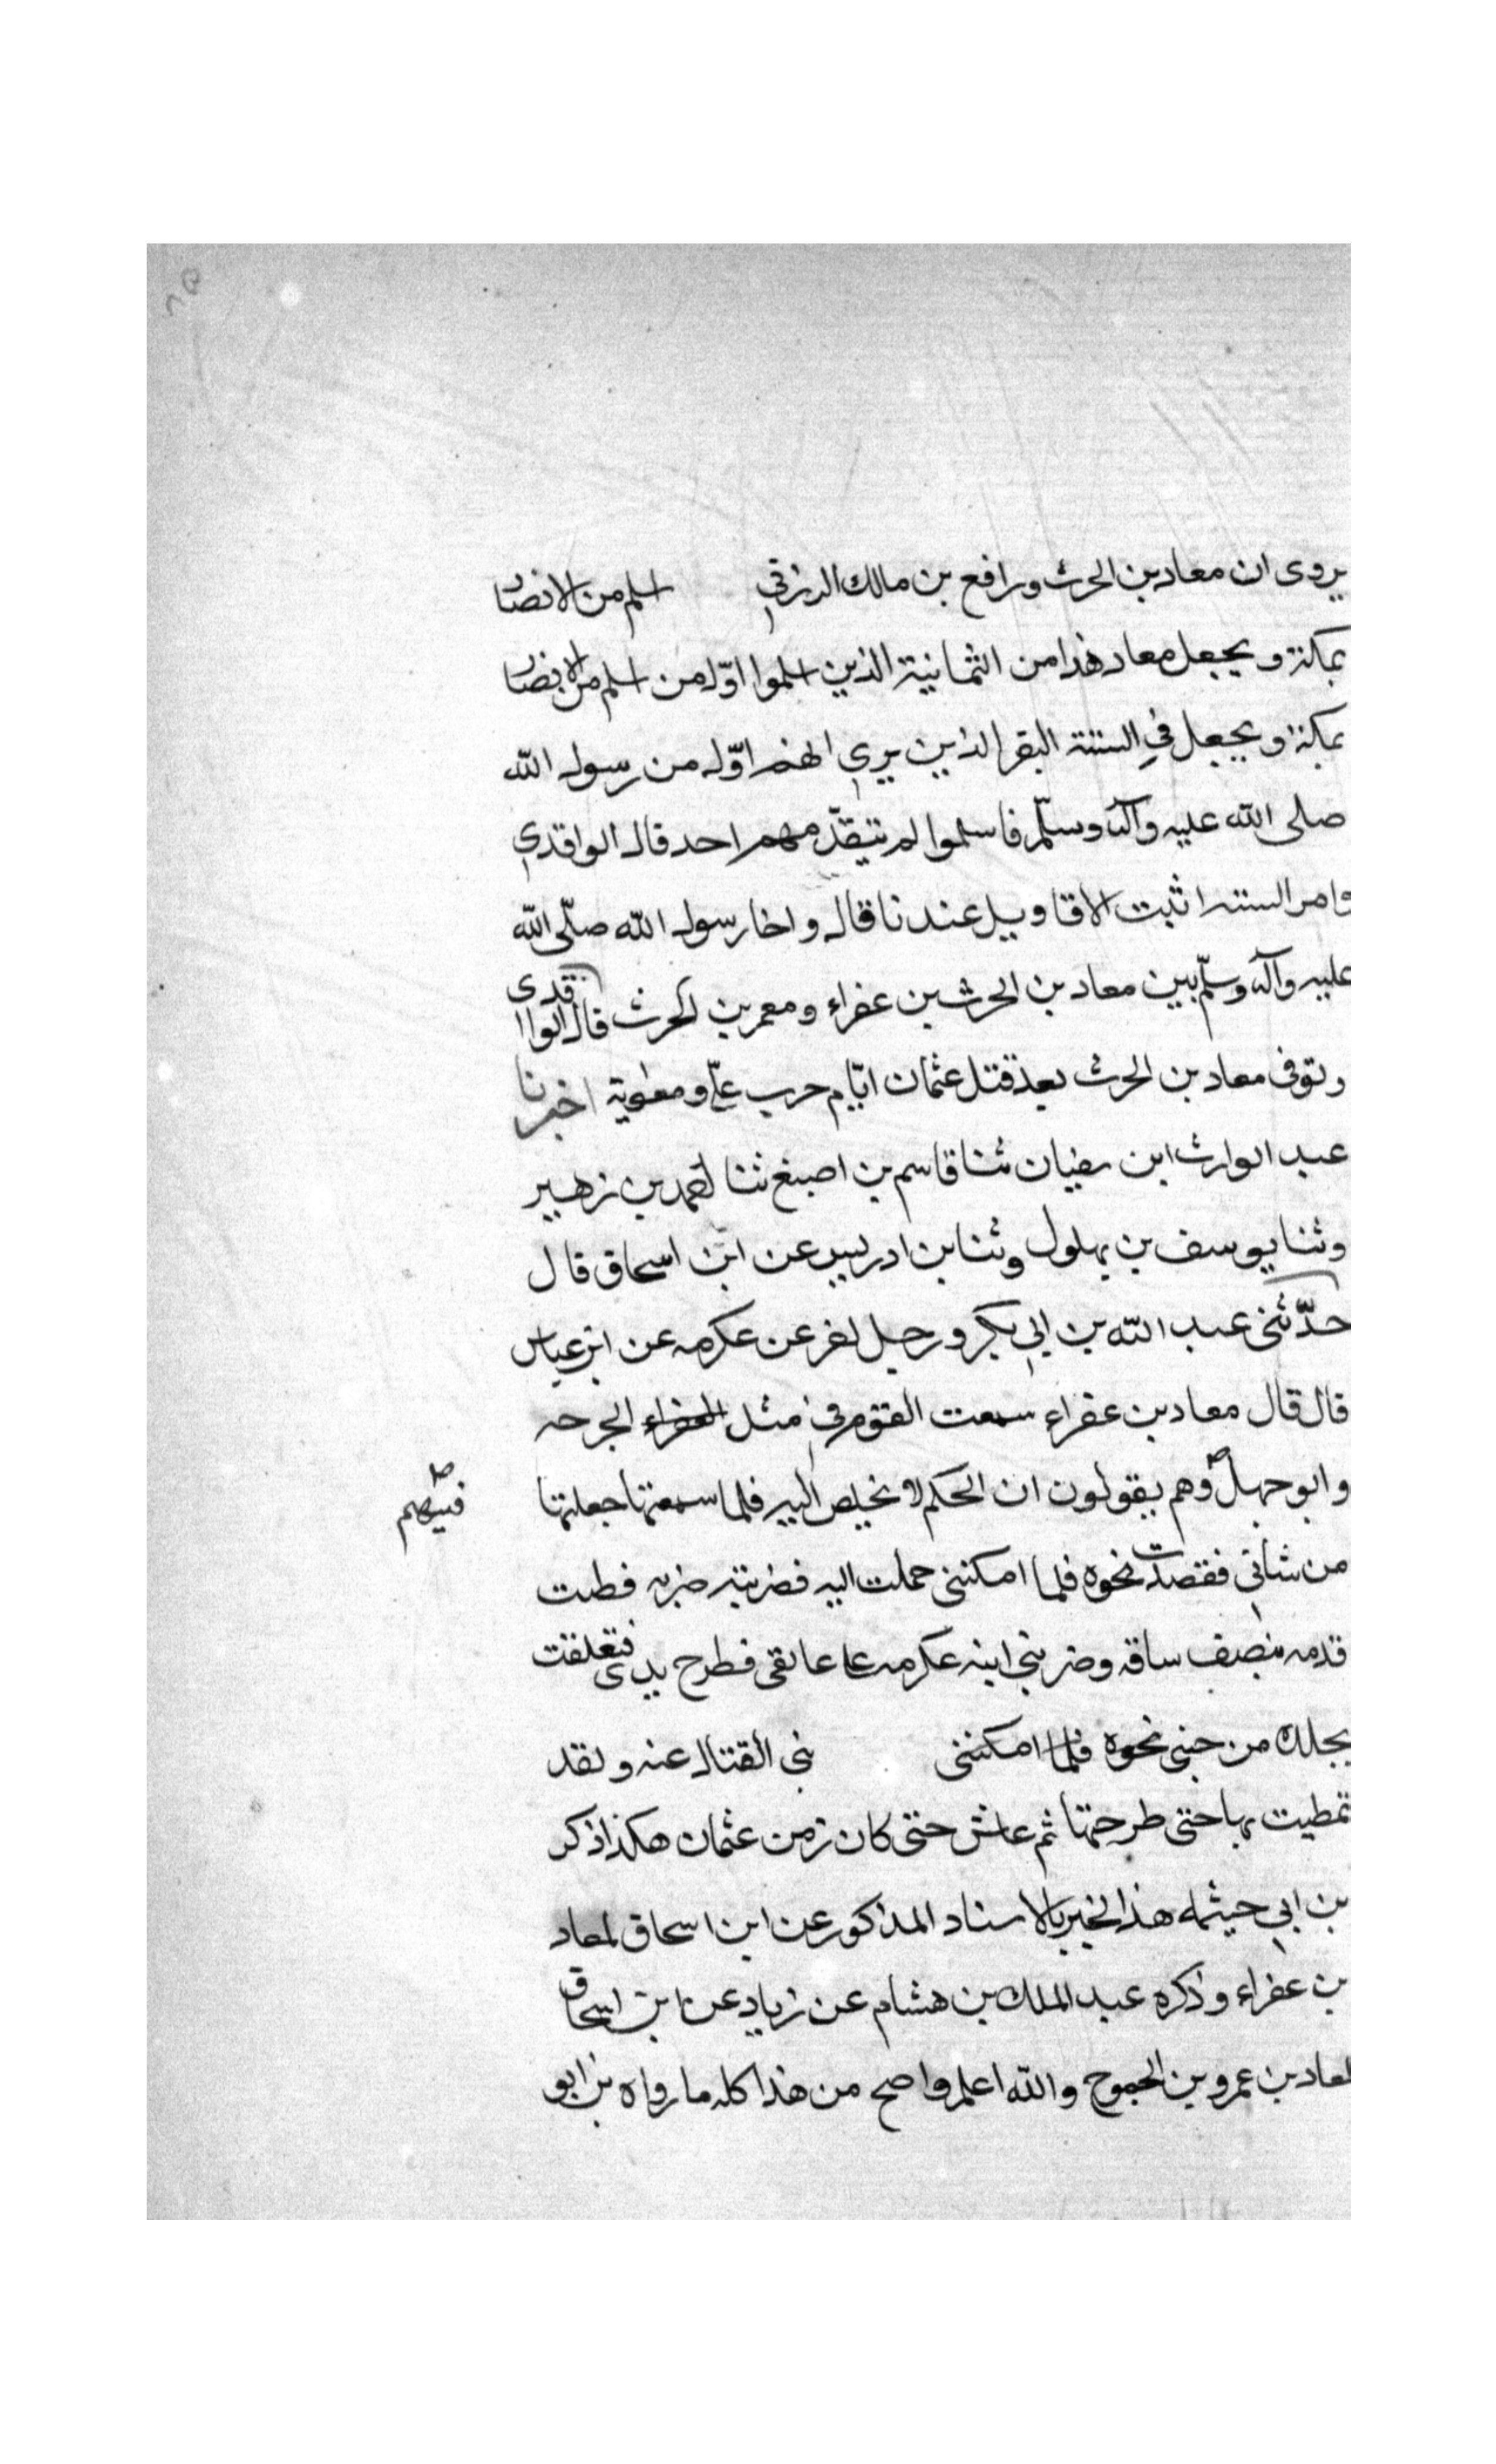 يروى ان معاد بن الحرث ورافع بن مالك الزرقي اسلم من الانصار
بمكة ويجعل معاد هذا من الثمانية الذين اسلموا اوّل من اسلم من الانصار
بمكة ويجعل في الستة النفر الذين يرى انهم اوّل من رسول الله
صلى الله عليه وآله وسلّم فاسلموا لم يتقدّمهم احد قال الواقدي
وامر الستة اثبت الاقاويل عندنا قال واخا رسول الله صلّى الله
عليه وآله وسلّم بين معاد بن الحرث بن عفراء ومعمر بن الحرث قال الواقدى
وتوفى معاد بن الحرث بعد قتل عثمان ايّام حرب علىّ ومعوية اخبرنا
عبد الوارث ابن سفيان ثنا قاسم بن اصبغ ثنا احمد بن زهير
وثنا يوسف بن بهلول وثنا بن ادريس عن ابن اسحاق قال
حدّثنى عبد الله بن ابي بكر ورجل اخر عن عكرمه عن ابن عباس
قال قال معاد بن عفراء سمعت القوم في مثل الجرحه
وابو جهل وهم يقولون ان الحكم لا يخلص اليه فلما سمعتها جعلتها
فيهم
من شاني فقصدت نحوه فلما امكننى حملت اليه فضربته ضربه فطت
قدمه بنصف ساقه وضربني ابنه عكرمه على عاتقى فطرح يدى فتعلقت
بجلده من جنبى نحوه فلما امكننى نى القتال عنه ولقد
تمطيت بها حتى طرحتها ثم عاش حتى كان زمن عثمان هكذا ذكر
بن ابي حيثمه هذا الخبر بالاسناد المذكور عن ابن اسحاق لمعاد
بن عفراء وذكره عبد الملك بن هشام عن زياد عن ابن اسحاق
لمعاد بن عمرو بن الجموح والله اعلم واصح من هذا كله ما رواه بن ابو